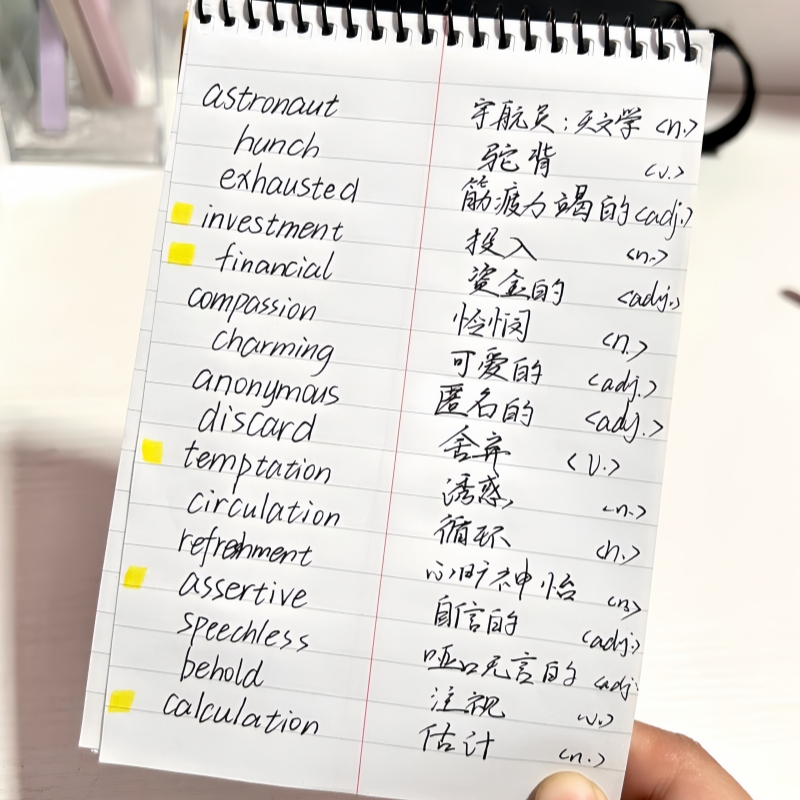 astronaut 宇航员；天文学 <n.>
hunch 驼背 <v.>
exhausted 筋疲力竭的 <adj.>
investment 投入 <n.>
financial 资金的 <adj.>
compassion 怜悯 <n.>
charming 可爱的 <adj.>
anonymous 匿名的 <adj.>
discard 舍弃 <v.>
temptation 诱惑 <n.>
circulation 循环 <n.>
心旷神怡 <n.>
assertive 自信的 <adj.>
speechless 哑口无言的 <adj.
behold 注视 <v.>
calculation 估计 <n.>